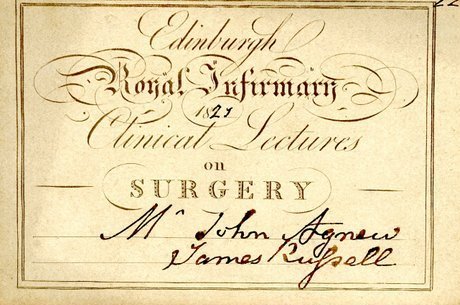 Edinburgh
Royal Infirmary
182
Clinical Lectures
on
SURGERY
Mr John Agnew
James Russell